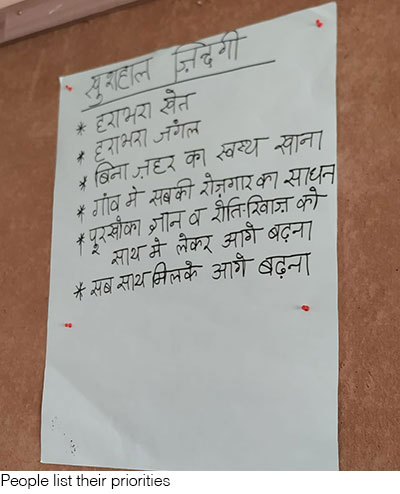 खुशहाल ज़िंदगी
* हराभरा खेत
* हराभरा जंगल
* बिना ज़हर का स्वस्थ खाना
* गांव मे सबकी रोज़गार का साधन
* पूरखोका ज्ञान व रीति-रिवाज़ को
साथ मे लेकर आगे बढ़ना
* सब साथ मिलके आगे बढ़ना
People list their priorities